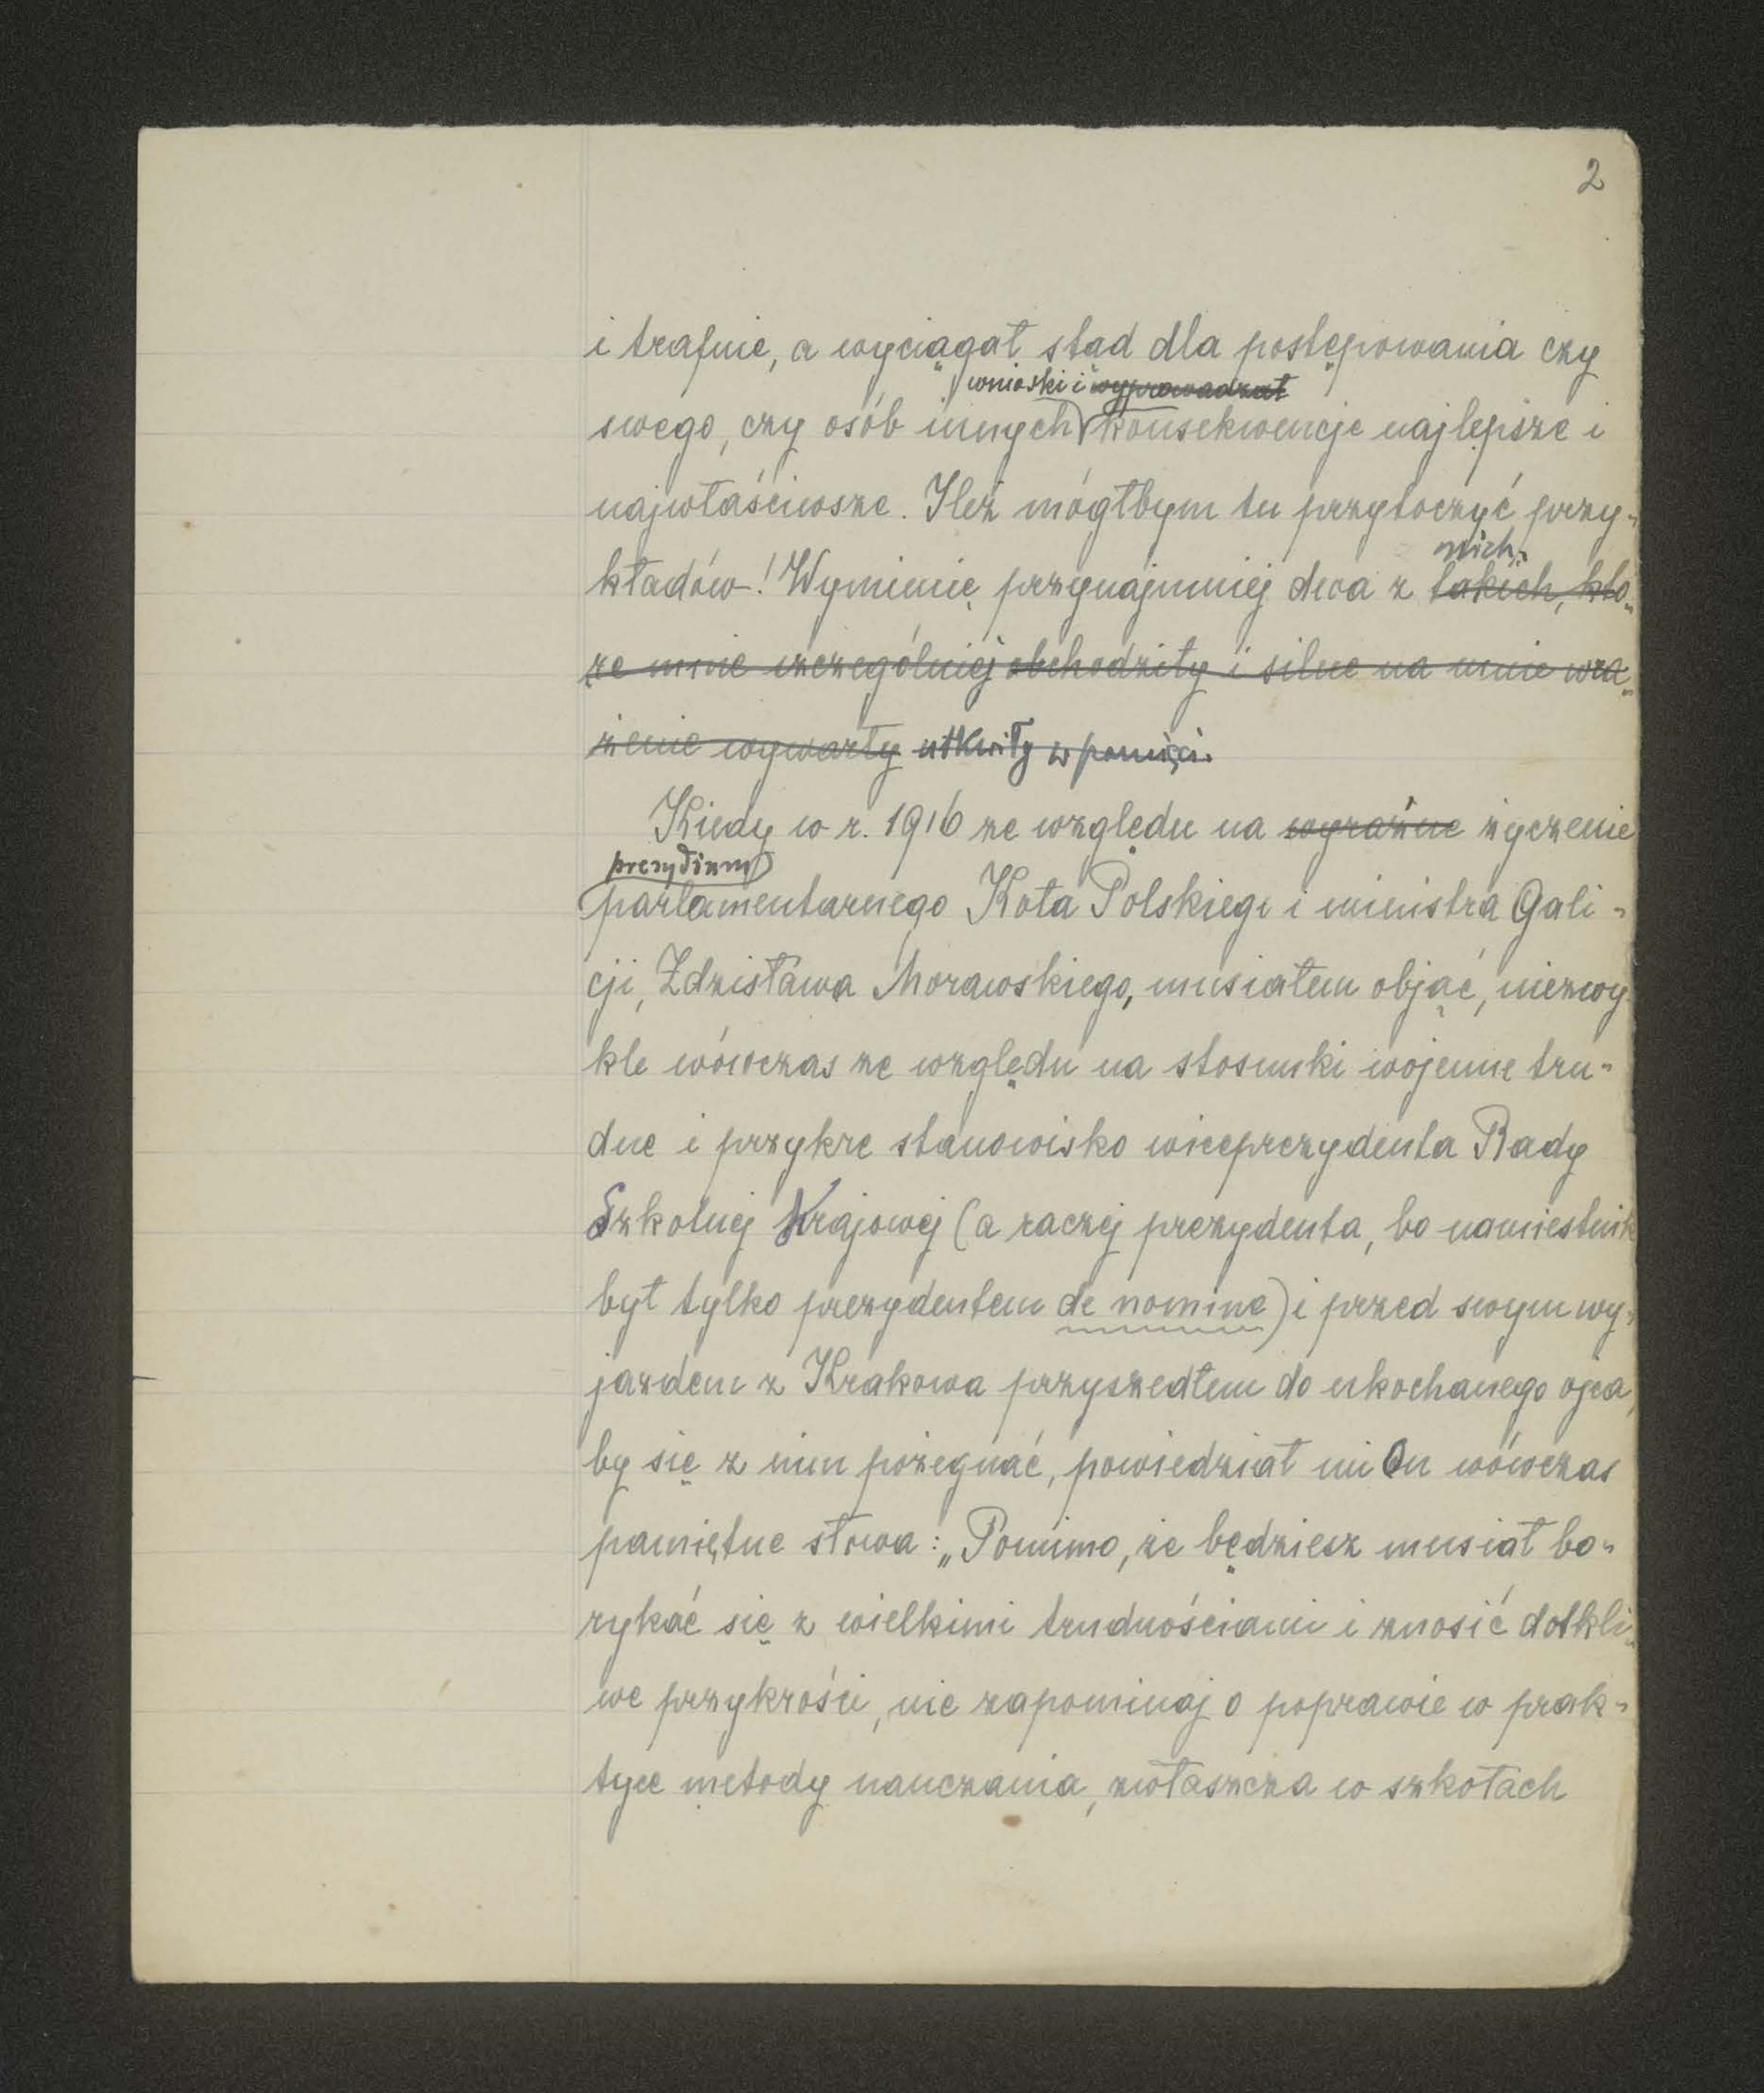 2
i trafnie, a wyciągał stąd dla postępowania czy
wnioski i wyprowadzał
swego, czy osób innych konsekwencje najlepsze i
najwłaściwsze. Ileż mógłbym tu przytoczyć przy-
nich.
kładów! Wymienię przynajmniej dwa z takich, któ-
re mnie szczególniej obchodziły i silne na mnie wra-
żenie wywarły utkwiły w pamięci.
Kiedy w r. 1916 ze względu na wyraźne życzenie
prezydium
parlamentarnego Koła Polskiego i ministra Gali-
cji, Zdzisława Morawskiego, musiałem objąć, niezwy-
kle wówczas ze względu na stosunki wojenne tru-
dne i przykre stanowisko wiceprezydenta Rady
Szkolnej Krajowej (a raczej prezydenta, bo namiestnik
był tylko prezydentem de nomine) i przed swym wy-
jazdem z Krakowa przyszedłem do ukochanego ojca,
by się z nim pożegnać, powiedział mi On wówczas
pamiętne słowa: „Pomimo, że będziesz musiał bo-
rykać się z wielkimi trudnościami i znosić dotkli-
we przykrości, nie zapominaj o poprawie w prak-
tyce metody nauczania, zwłaszcza w szkołach